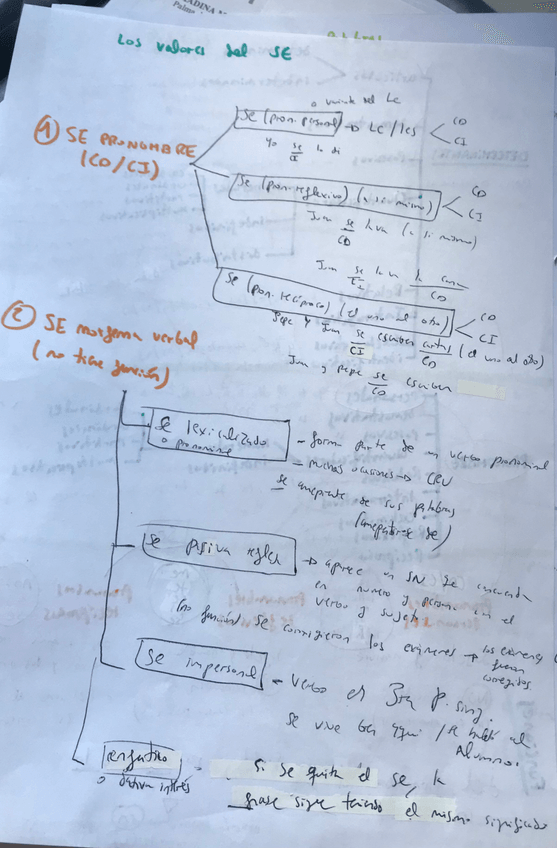 Los valores del SE
1) SE PRONOMBRE
(CD/CI)
o variante del Le
Se (pron. personal) → LE/les
CD
CI
Yo se la di
CI
Se (pron. reflexivo) (a sí mismo)
CD
CI
Juan se lava (a sí mismo)
CD
Juan se lava la cara
CI CD
Se (pron. recíproco) (el uno al otro)
CD
CI
Pepe y Juan se escriben cartas (el uno al otro)
CI CD
Juan y pepe se escriben
CD
2) SE morfema verbal
(no tiene función)
Se lexicalizado
o pronominal
- forma parte de un verbo pronominal
- muchas ocasiones → CRV
se arrepiente de sus palabras
(arrepentirse de)
Se pasiva refleja
→ aparece un SN que concuerda
en número y persona con el
verbo y sujeto
(no función) Se corrigieron los exámenes → los exámenes
fueron
corregidos
Se impersonal
- verbo en 3ra P. sing.
se vive bien aquí / se
alumno.
o dativo interés
- si se quita el se, la
frase sigue teniendo el mismo significado